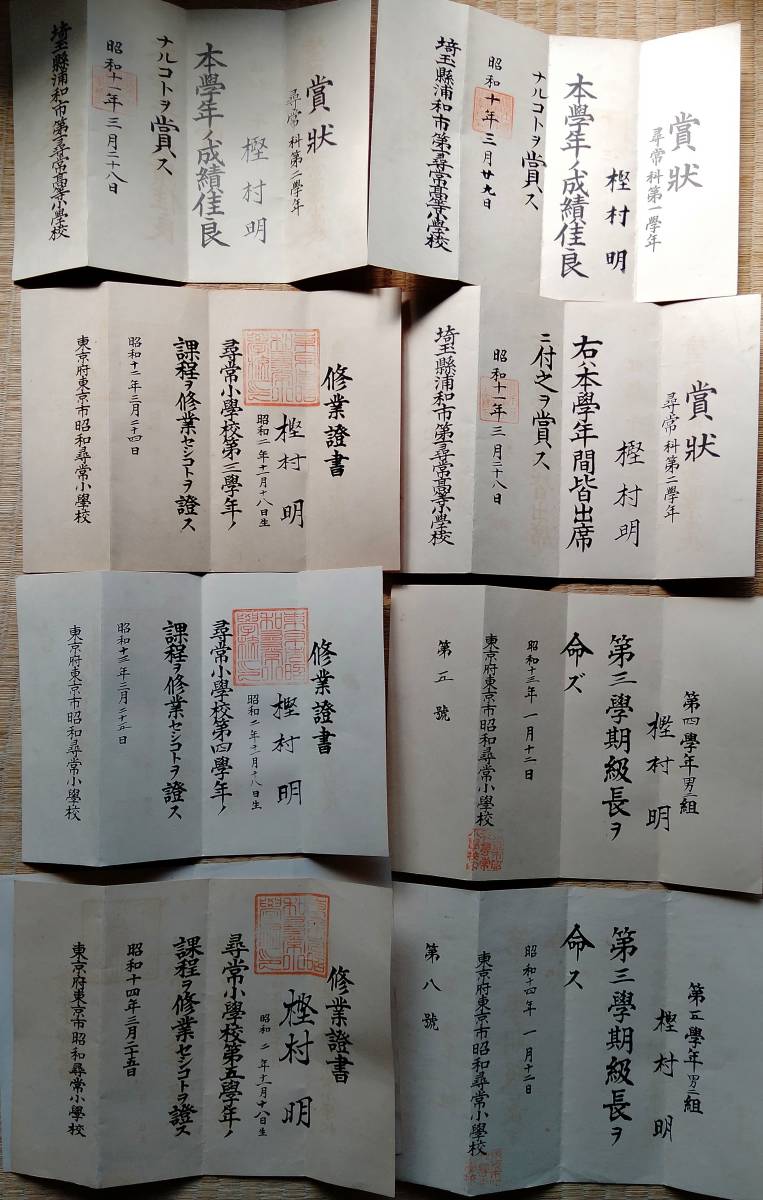 賞狀
尋常科第一學年
樫村明
本學年ノ成績佳良
ナルコトヲ賞ス
昭和十年三月廿九日
埼玉縣浦和市第一尋常高等小學校
賞狀
尋常科第二學年
樫村明
本學年ノ成績佳良
ナルコトヲ賞ス
昭和十一年三月二十八日
埼玉縣浦和市第一尋常高等小學校
賞狀
尋常科第二學年
樫村明
右ハ本學年間皆出席
ニ付之ヲ賞ス
昭和十一年三月二十八日
埼玉縣浦和市第一尋常高等小學校
修業證書
樫村明
昭和二年十一月十八日生
尋常小學校第三學年ノ
課程ヲ修業セシコトヲ證ス
昭和十二年三月二十四日
東京府東京市昭和尋常小學校
第四學年男二組
樫村明
第三學期級長ヲ
命ズ
昭和十三年一月十二日
東京府東京市昭和尋常小學校
第五號
修業證書
樫村明
昭和二年十一月十八日生
尋常小學校第四學年ノ
課程ヲ修業セシコトヲ證ス
昭和十三年三月二十五日
東京府東京市昭和尋常小學校
第五學年男二組
樫村明
第三學期級長ヲ
命ス
昭和十四年一月十二日
東京府東京市昭和尋常小學校
第八號
修業證書
樫村明
昭和二年十一月十八日生
尋常小學校第五學年ノ
課程ヲ修業セシコトヲ證ス
昭和十四年三月二十五日
東京府東京市昭和尋常小學校